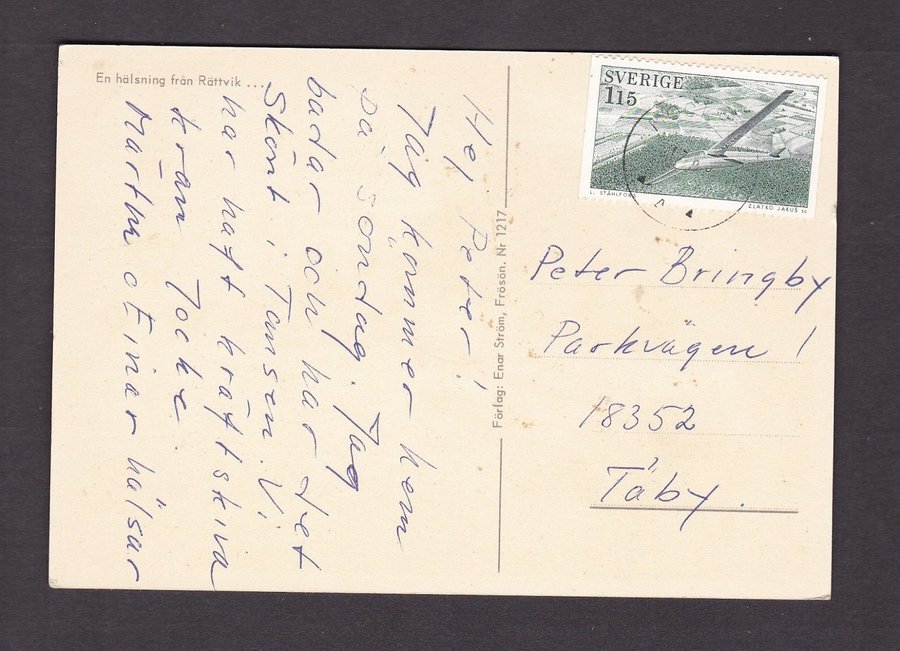 En hälsning från Rättvik ....
Hej Peter!
Jag kommer hem
på söndag. Jag
badar och har det
skönt i Tansen. Vi
har haft kräftskiva
kram Tocke.
Martha o Einar hälsar
Förlag: Enar Ström, Frösön. Nr 1217
SVERIGE
115
L. STÅHLFORS
ZLATKO JAKUŠ sc
Peter Bringby
Parkvägen 1
18352
Täby.